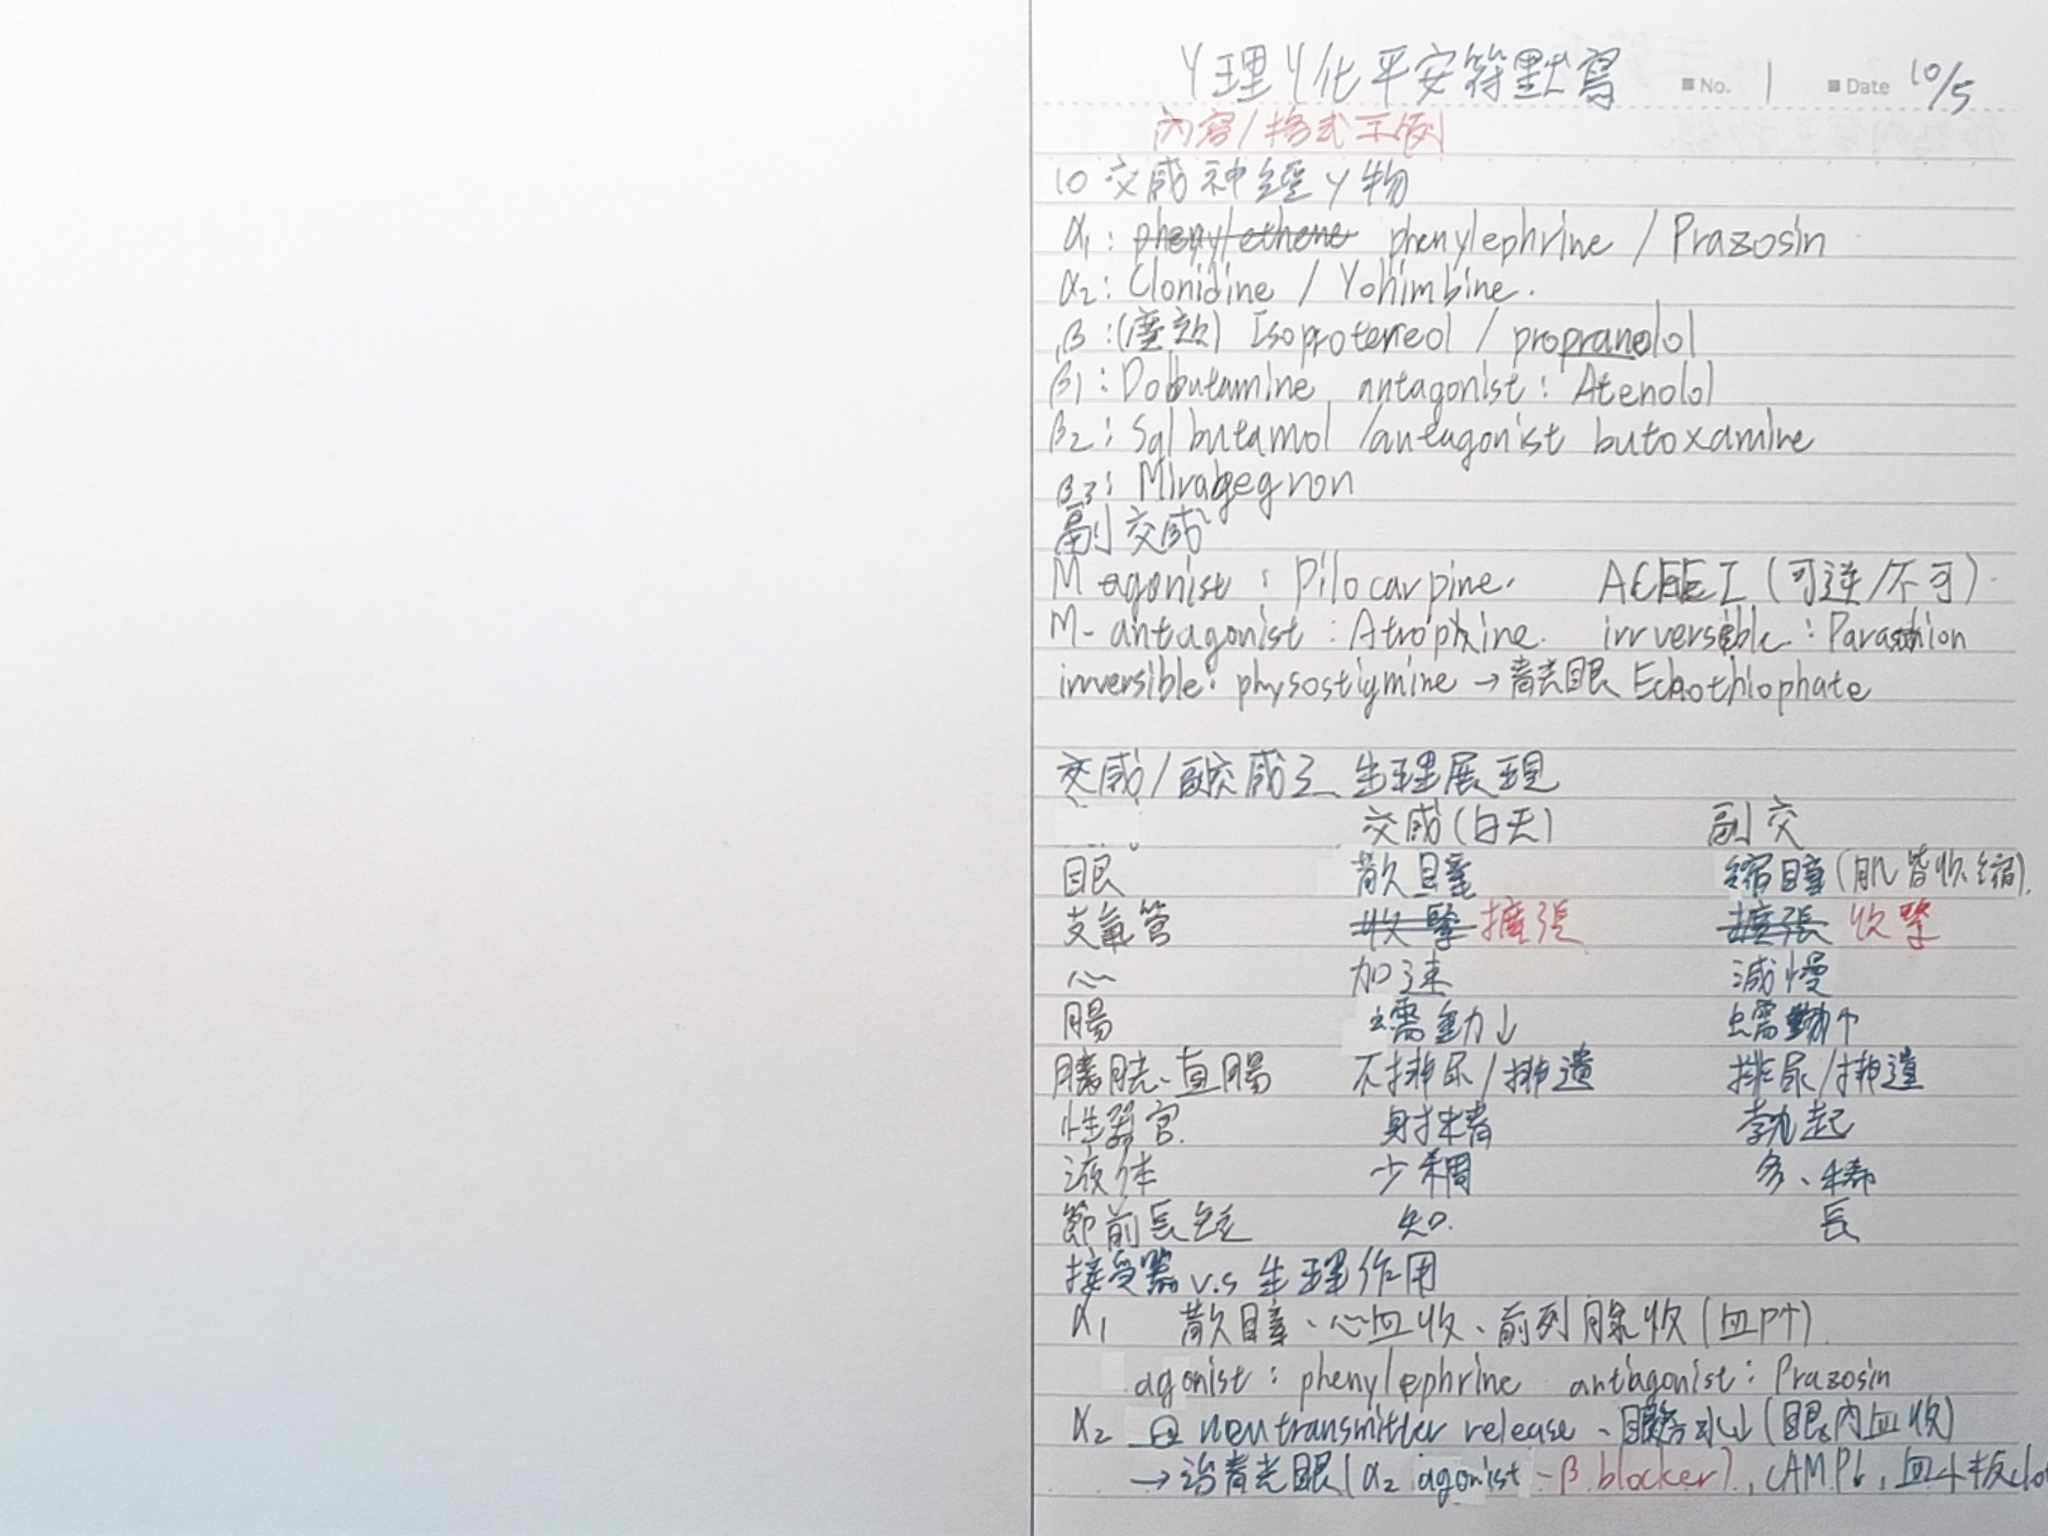 丫理丫化平安符默寫 No. 1 Date 10/5
內容/格式示例
10 交感神經丫物
α1: phenylethene phenylephrine / Prazosin
α2: Clonidine / Yohimbine.
β:( ) Isoproterenol / propranolol
β1: Dobutamine antagonist: Atenolol
β2: Salbutamol /antagonist butoxamine
β3: Mirabegron
副交感
M agonist : Pilocarpine. (可逆/不可)
M- antagonist : Atrophine. irrversible : Parathion
irrversible: physostigmine → 青光眼 Echothiophate
交感/副交感之生理展現
交感(白天) 副交
眼 散瞳 縮瞳(肌皆收縮).
支氣管 收緊 擴張 擴張 收緊
心 加速 減慢
腸 蠕動↓ 蠕動↑
膀胱、直腸 不排尿/排遺 排尿/排遺
性器官. 射精 勃起
液体 少稠 多、稀
節前長短 短. 長
接受器 v.s 生理作用
α1 散瞳、心血收、前列腺收(血P↑).
agonist : phenylephrine antiagonist : Prazosin
α2 ⊖ neutransmitter release、眼房水↓(眼內血收)
→治青光眼(α2 agonist - β blocker), cAMP↓, 血小板clo